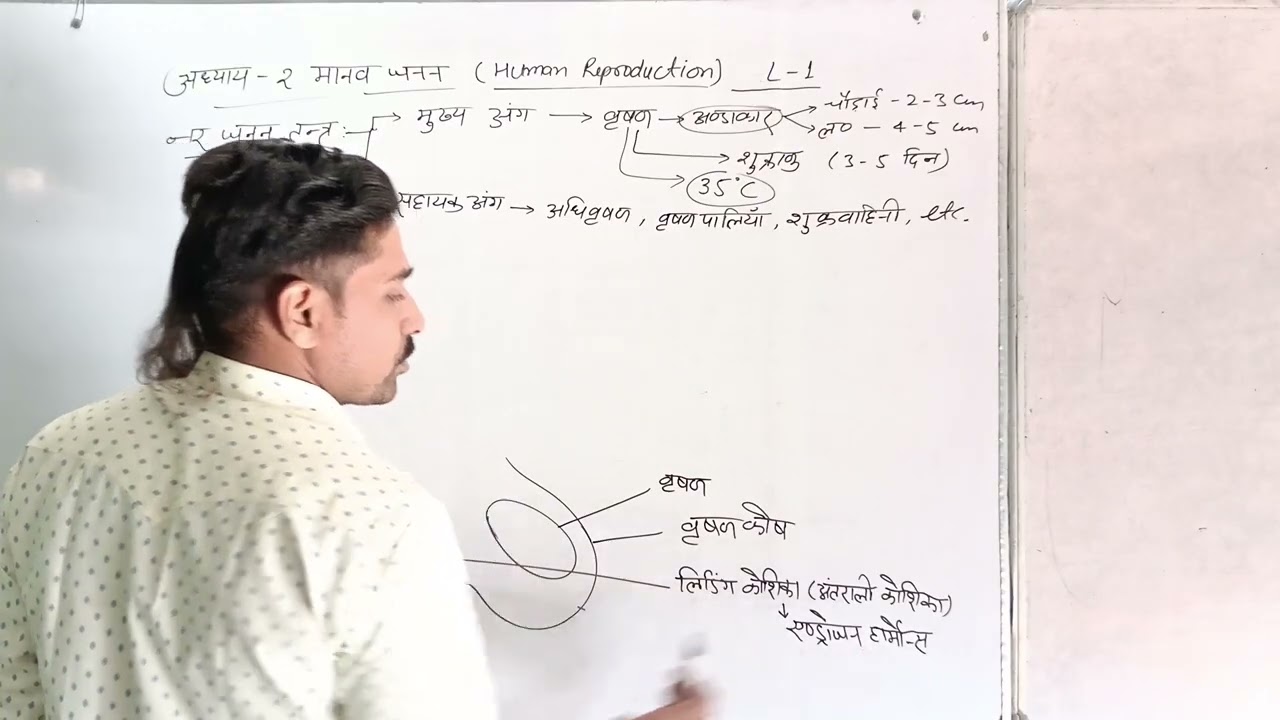 अध्याय - २ मानव जनन (Human Reproduction) L-1
नर जनन तन्त्र :- → मुख्य अंग → वृषण → अण्डाकार → चौड़ाई - 2-3 cm
→ ल० - 4-5 cm
→ शुक्राणु (3-5 दिन)
→ 35°C
सहायक अंग → अधिवृषण, वृषण पालियाँ, शुक्रवाहिनी, etc.
वृषण
वृषण कोष
लिडिंग कोशिका (अंतराली कोशिका)
↓
एण्ड्रोजन हार्मोन्स